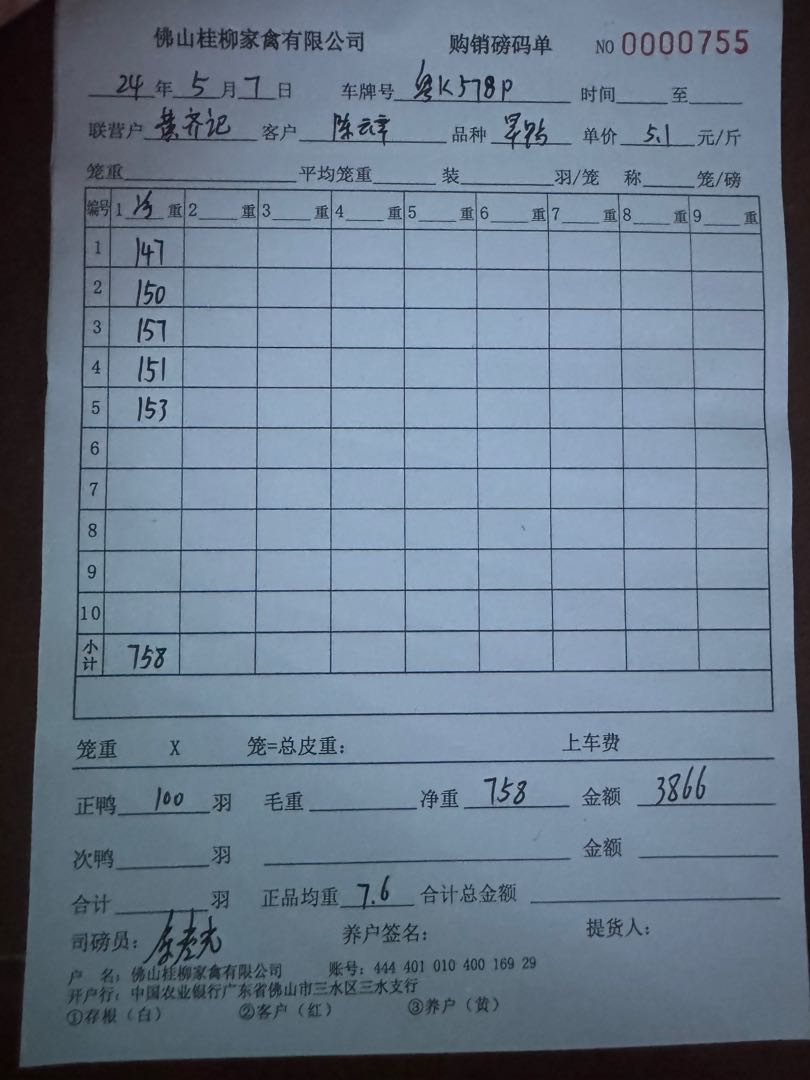 佛山桂柳家禽有限公司 购销磅码单 NO 0000755
24年5月7日 车牌号 粤K578P 时间 至
联营户 黄齐记 客户 陈云 品种 旱鸭 单价 5.1 元/斤
笼重 平均笼重 装 羽/笼 称 笼/磅
编号 1 净 重 2 重 3 重 4 重 5 重 6 重 7 重 8 重 9 重
1 147
2 150
3 157
4 151
5 153
6
7
8
9
10
小计 758
笼重 X 笼=总皮重: 上车费
正鸭 100 羽 毛重 净重 758 金额 3866
次鸭 羽 金额
合计 羽 正品均重 7.6 合计总金额
司磅员: 养户签名: 提货人:
户 名: 佛山桂柳家禽有限公司 账号: 444 401 010 400 169 29
开户行: 中国农业银行广东省佛山市三水区三水支行
①存根(白) ②客户(红) ③养户(黄)